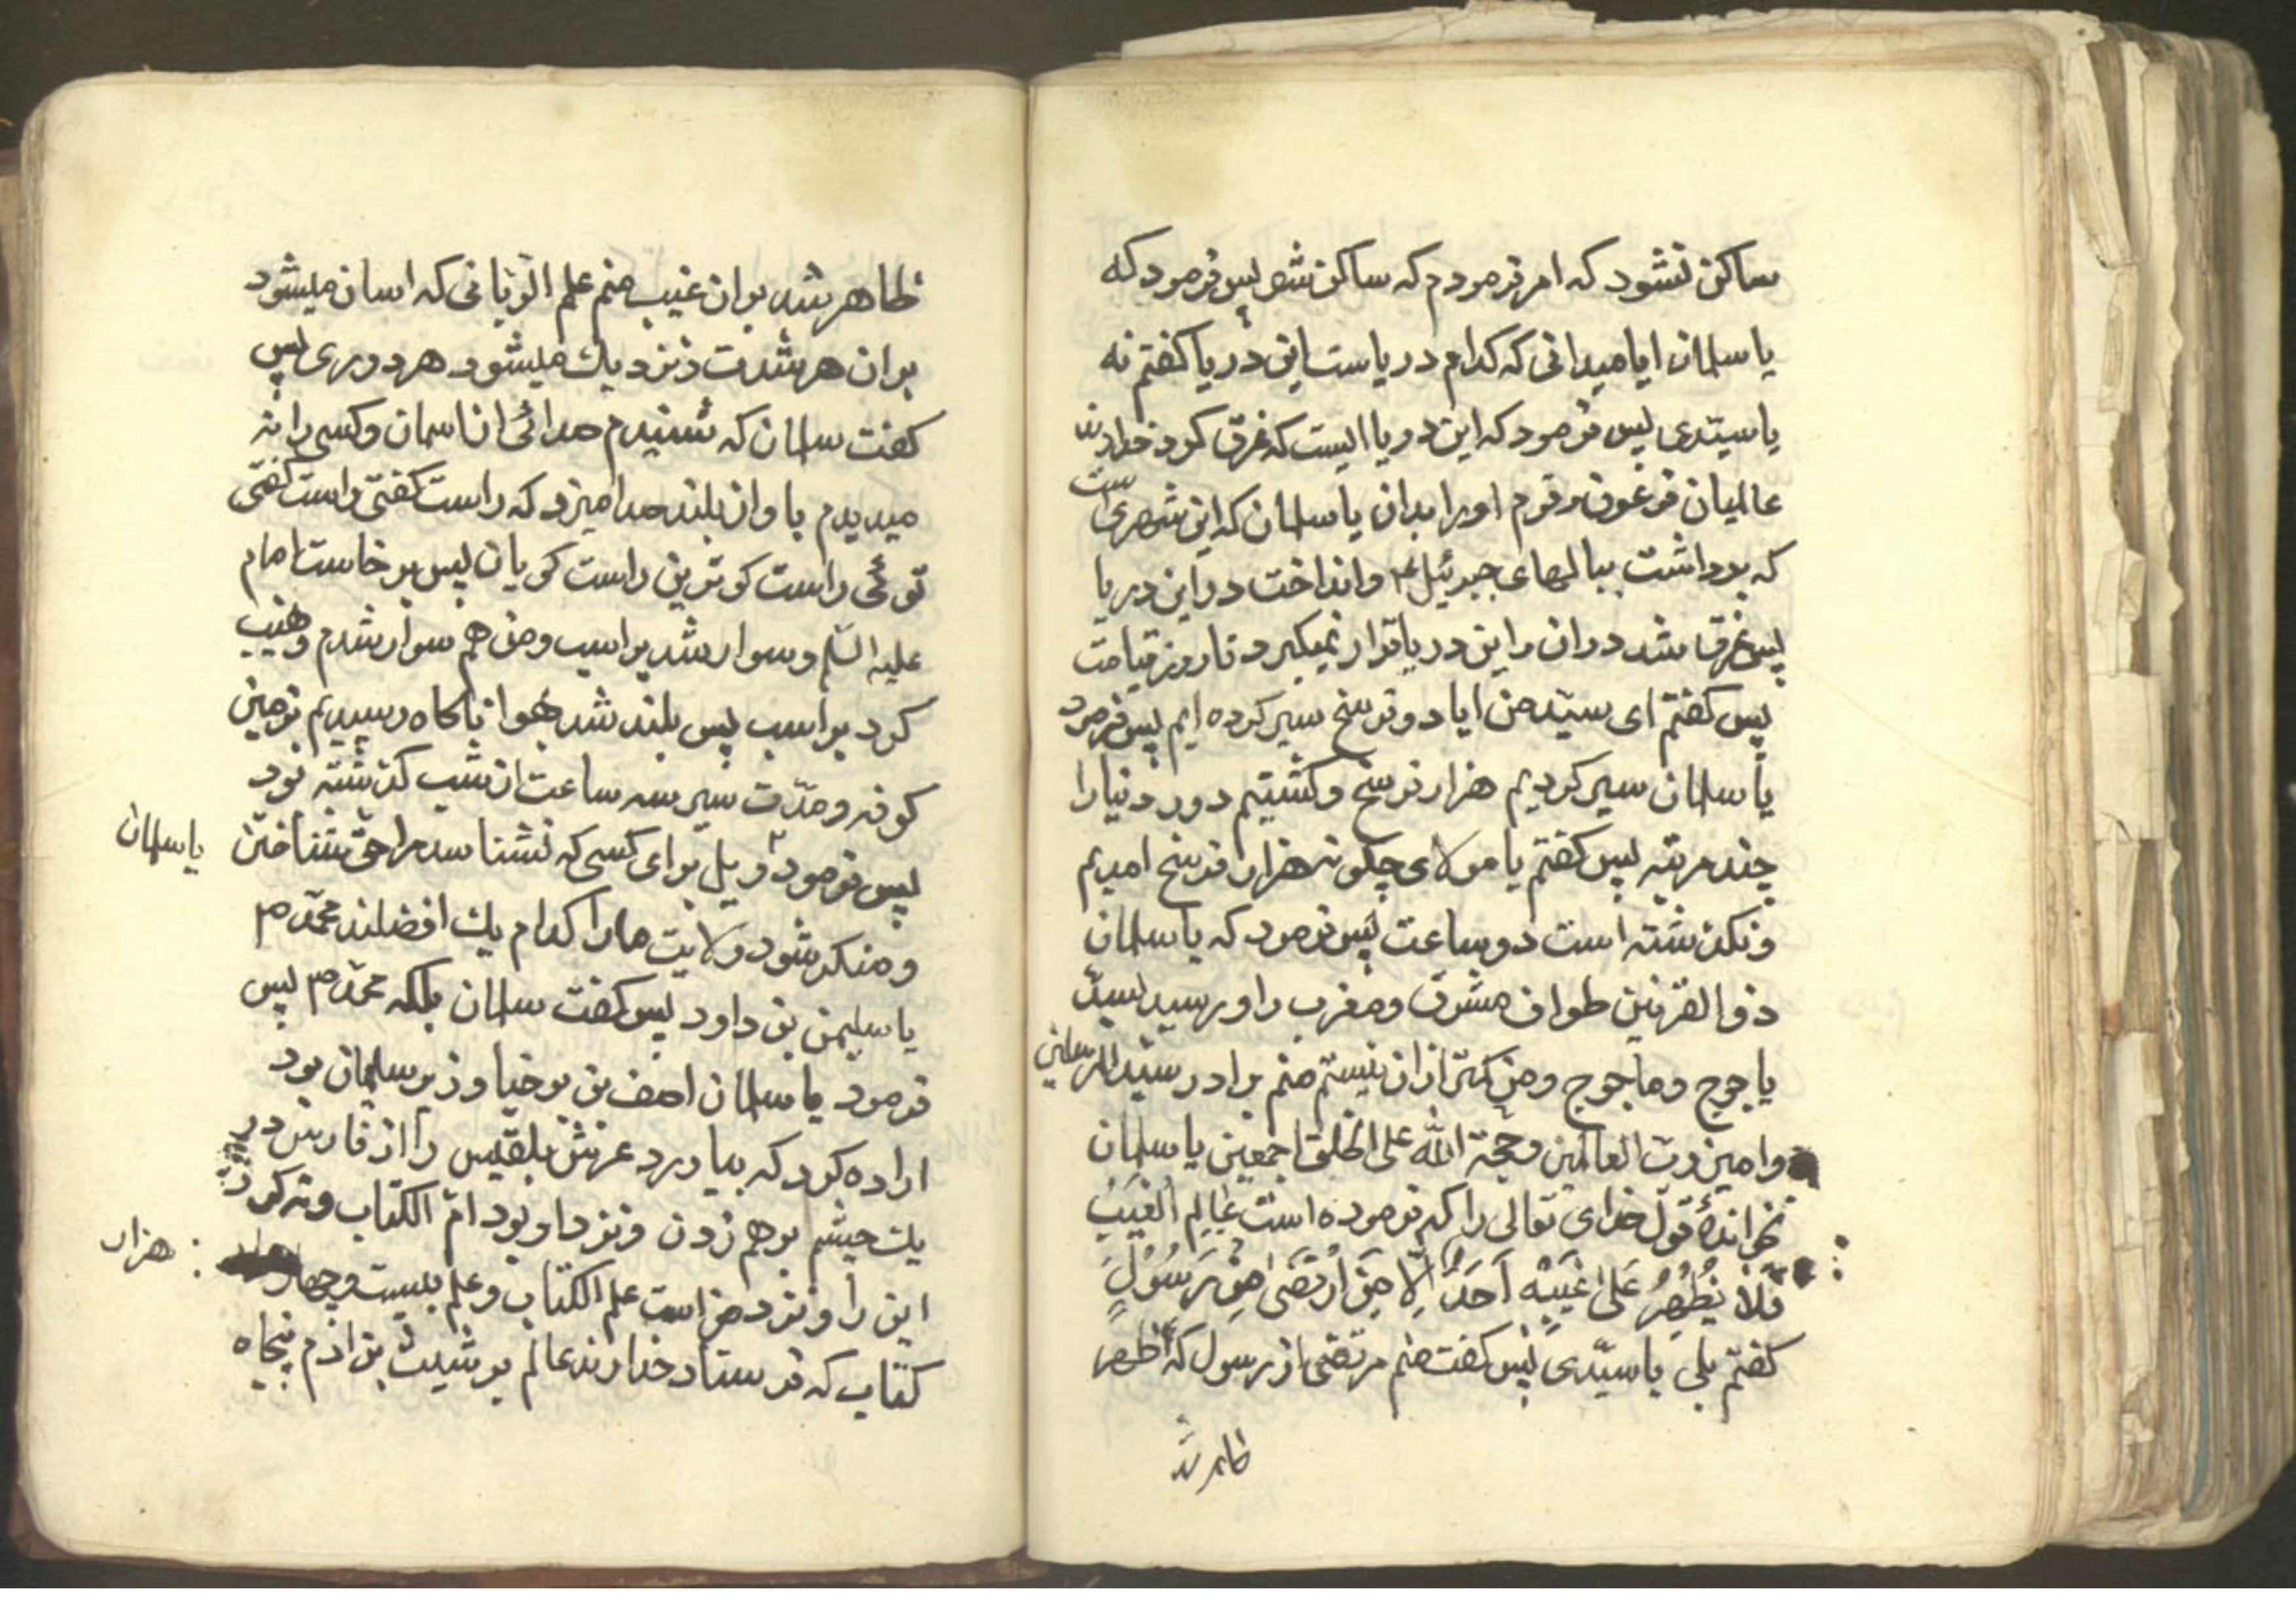 ساکن نشود که امر فرمودم که ساکن شو پس فرمود که
یا سلمان ایا میدانی که کدام دریاست این دریا کفتم نه
یا سیّدی پس فرمود که این دریا ایست که غرق کرد خداوند
عالمیان فرعون و قوم او را بدان یا سلمان که این شهری است
که برداشت ببالهای جبرئیل ع و انداخت در این دریا
پس غرق شد در ان و این دریا قرار نمیکیرد تا روز قیامت
پس کفتم ای سیّد من ایا دو فرسخ سیر کرده ایم پس فرمود
یا سلمان سیر کردیم هزار فرسخ و کشتیم دور دنیا را
چند مرتبه پس کفتم یا مولای چکونه هزار فرسخ امدیم
و نکذشته است دو ساعت پس فرمود که یا سلمان
ذو القرنین طواف مشرق و مغرب را و رسید بسدّ
یاجوج و ماجوج و من کمتر از ان نیستم منم برادر سیّد المرسلین
و امین ربّ العالمین و حجة الله علی الخلق اجمعین یا سلمان
نخواندهٔ قول خدای تعالی را که فرموده است عَالِمِ الْغَيْبِ
فَلَا يُظْهِرُ عَلَىٰ غَيْبِهِ أَحَدًا إِلَّا مَنِ ارْتَضَىٰ مِنْ رَسُولٍ
کفتم بلی یا سیّدی پس کفت منم مرتضی از رسول که اظهر
ظاهر شد
ظاهر شد بر ان غیب منم علم الربانی که اسان میشود
بر ان هر شدت و نزدیك میشود هر دوری پس
کفت سلمان که شنیدم صدائی از اسمان و کسی را نه
میدیدم باواز بلند صدا میزد که راست کفتی راست کفتی
توئی راست کوترین راست کویان پس برخاست امام
علیه السّلم و سوار شد بر اسب و من هم سوار شدم و هیب
کرد بر اسب پس بلند شد بهوا ناکاه رسیدیم بزمین
کوفه و مدّت سیر سه ساعت از شب کذشته بود
پس فرمود ویل برای کسی که نشناسد مرا حقّ شناختن
یا سلمان
و منکر شود ولایت ما را کدام یك افضلند محمّد ص
یا سلیمن بن داود پس کفت سلمان بلکه محمّد ص پس
فرمود یا سلمان اصف بن برخیا وزیر سلیمان بود
اراده کرد که بیاورد عرش بلقیس را از فارس در
یك چشم برهم زدن و نزد او بود امّ الکتاب و نه کرد
این را و نزد من است علم الکتاب و علم بیست و چهار
هزار
کتاب که فرستاد خداوند عالم بر شیث بن ادم پنجاه